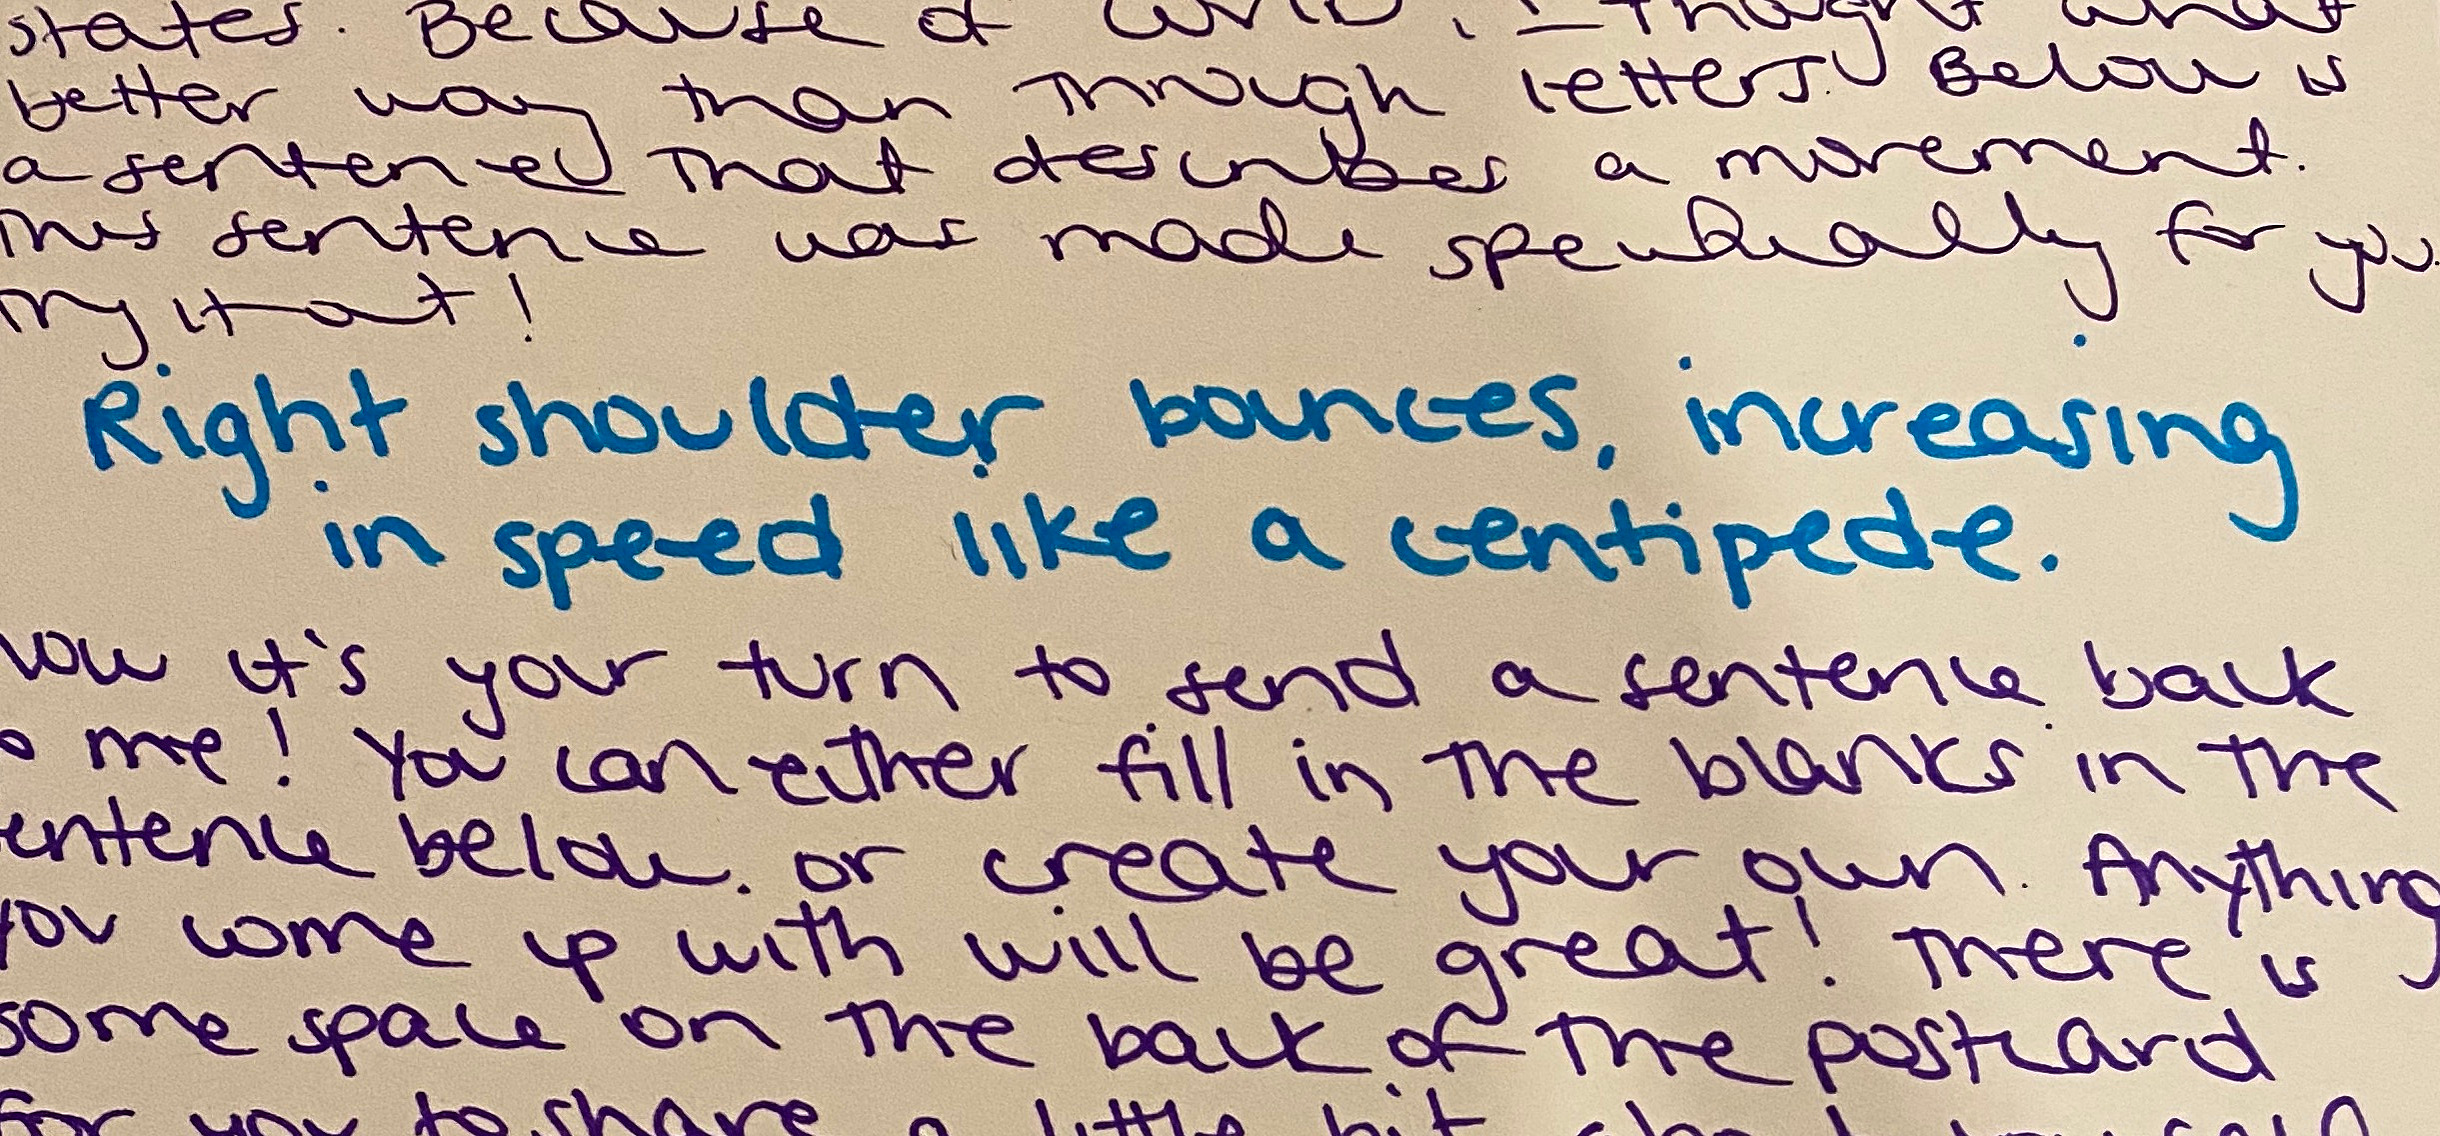 states. Because of COVID, I thought what
better way than through letters! Below is
a sentence that describes a movement.
This sentence was made specifically for you.
Try it out!
Right shoulder bounces, increasing
in speed like a centipede.
Now it's your turn to send a sentence back
to me! You can either fill in the blanks in the
sentence below or create your own. Anything
you come up with will be great! There is
some space on the back of the postcard
for you to share a little bit about yourself